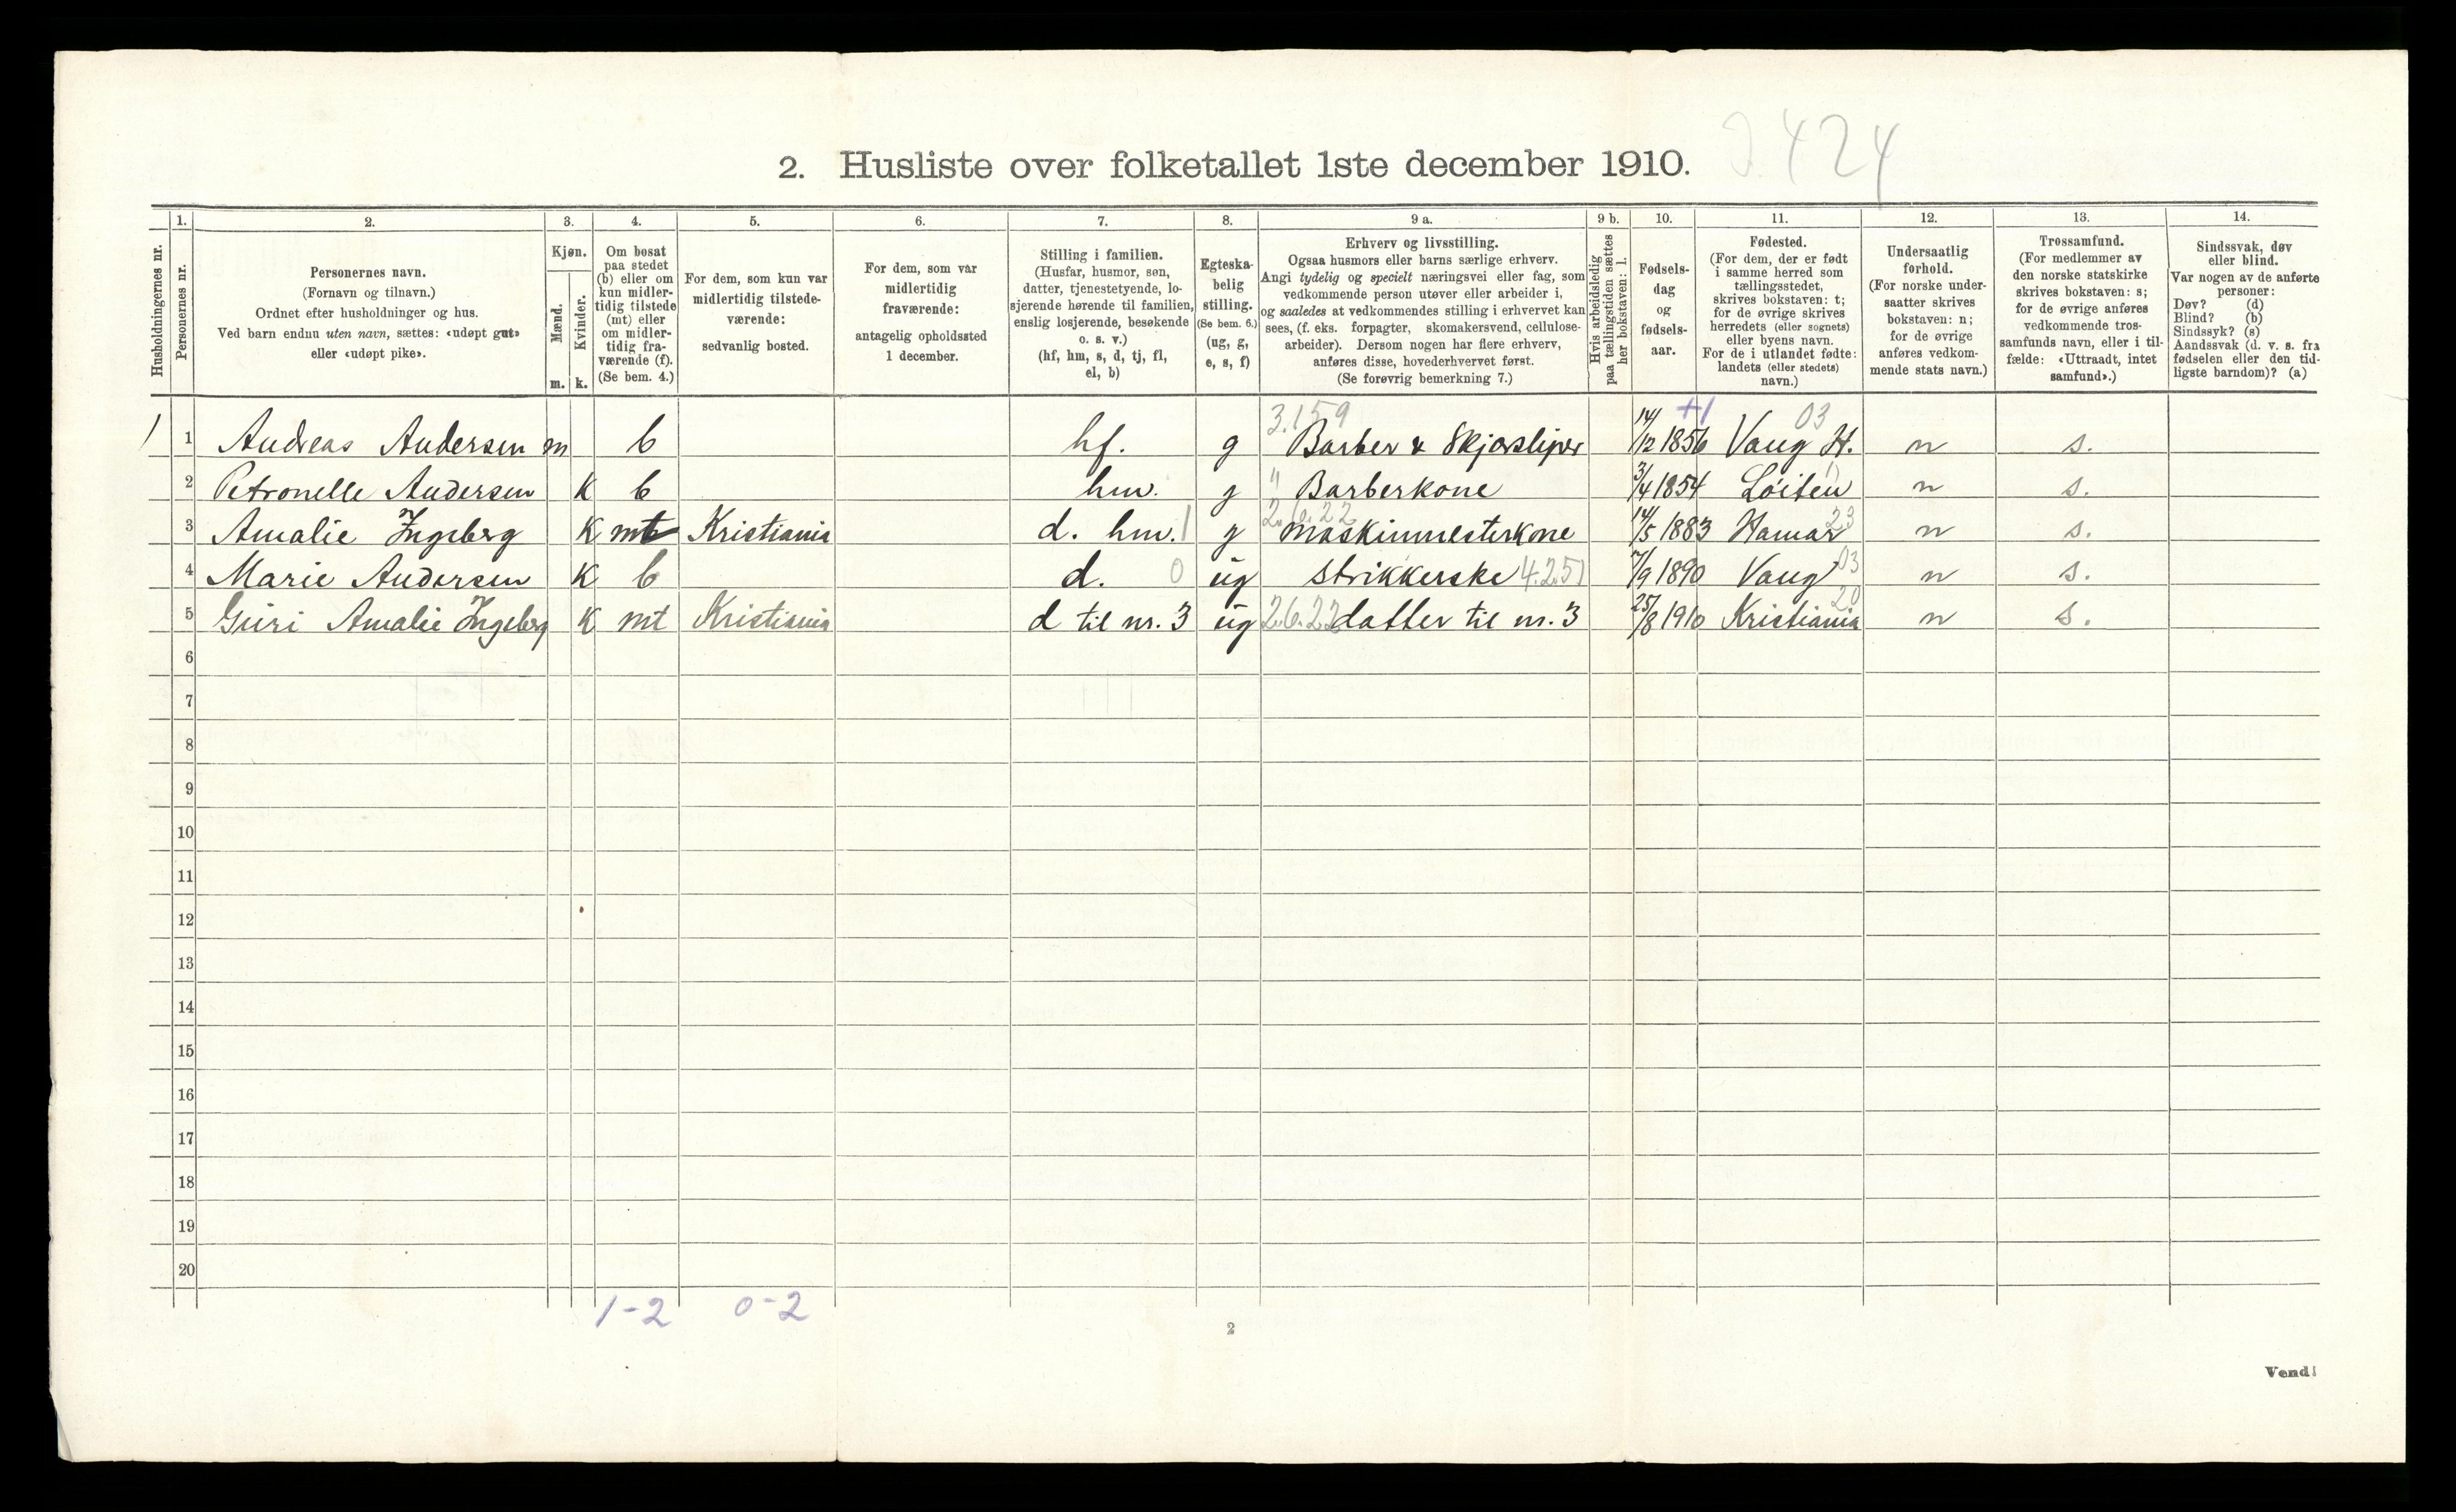 J. 424
2. Husliste over folketallet 1ste december 1910.
1. 2. 3. 4. 5. 6. 7. 8. 9 a. 9 b. 10. 11. 12. 13. 14.
Husholdningernes nr.
Personernes nr.
Personernes navn.
(Fornavn og tilnavn.)
Ordnet efter husholdninger og hus.
Ved barn endnu uten navn, sættes: «udøpt gut»
eller «udøpt pike».
Kjøn.
Mænd.
Kvinder.
m. k.
Om bosat
paa stedet
(b) eller om
kun midler-
tidig tilstede
(mt) eller
om midler-
tidig fra-
værende (f).
(Se bem. 4.)
For dem, som kun var
midlertidig tilstede-
værende:
sedvanlig bosted.
For dem, som var
midlertidig
fraværende:
antagelig opholdssted
1 december.
Stilling i familien.
(Husfar, husmor, søn,
datter, tjenestetyende, lo-
sjerende hørende til familien,
enslig losjerende, besøkende
o. s. v.)
(hf, hm, s, d, tj, fl,
el, b)
Egteska-
belig
stilling.
(Se bem. 6.)
(ug, g,
e, s, f)
Erhverv og livsstilling.
Ogsaa husmors eller barns særlige erhverv.
Angi tydelig og specielt næringsvei eller fag, som
vedkommende person utøver eller arbeider i,
og saaledes at vedkommendes stilling i erhvervet kan
sees, (f. eks. forpagter, skomakersvend, cellulose-
arbeider). Dersom nogen har flere erhverv,
anføres disse, hovederhvervet først.
(Se forøvrig bemerkning 7.)
Hvis arbeidsledig
paa tællingstiden sættes
her bokstaven: l.
Fødsels-
dag
og
fødsels-
aar.
Fødested.
(For dem, der er født
i samme herred som
tællingsstedet,
skrives bokstaven: t;
for de øvrige skrives
herredets (eller sognets)
eller byens navn.
For de i utlandet fødte:
landets (eller stedets)
navn.)
Undersaatlig
forhold.
(For norske under-
saatter skrives
bokstaven: n;
for de øvrige
anføres vedkom-
mende stats navn.)
Trossamfund.
(For medlemmer av
den norske statskirke
skrives bokstaven: s;
for de øvrige anføres
vedkommende tros-
samfunds navn, eller i til-
fælde: «Uttraadt, intet
samfund».)
Sindssvak, døv
eller blind.
Var nogen av de anførte
personer:
Døv? (d)
Blind? (b)
Sindssyk? (s)
Aandssvak (d. v. s. fra
fødselen eller den tid-
ligste barndom)? (a)
3.159 +1 03
1 1 Andreas Andersen m b hf. g Barber & Skjærsliper 14/12 1856 Vang H. n s.
2 Petronelle Andersen k b hm. g " Barberkone 3/4 1854 Løiten n s.
2.6.22
3 Amalie Ingeberg k mt Kristiania d. hm. 1 g maskinmesterkone 14/5 1883 Hamar 23 n s.
4 Marie Andersen k b d. 0 ug strikkerske 4.251 7/9 1890 Vang 03 n s.
5 Guri Amalie Ingeberg k mt Kristiania d til nr. 3 ug 2.6.22 datter til nr. 3 25/8 1910 Kristiania 20 n s.
6
7
8
9
10
11
12
13
14
15
16
17
18
19
20
1-2 0-2
2
Vend!